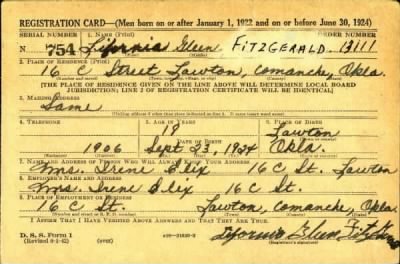 REGISTRATION CARD—(Men born on or after January 1, 1922 and on or before June 30, 1924)
SERIAL NUMBER 1. NAME (Print) ORDER NUMBER
N 754 Glenn FITZGERALD 13111
2. PLACE OF RESIDENCE (Print)
16 C Street Lawton, Comanche, Okla.
[THE PLACE OF RESIDENCE GIVEN ON THE LINE ABOVE WILL DETERMINE LOCAL BOARD
JURISDICTION; LINE 2 OF REGISTRATION CERTIFICATE WILL BE IDENTICAL]
3. MAILING ADDRESS
Same
4. TELEPHONE 5. AGE IN YEARS 6. PLACE OF BIRTH
18 Lawton
DATE OF BIRTH
1906 Sept 23, 1924 Okla.
7. NAME AND ADDRESS OF PERSON WHO WILL ALWAYS KNOW YOUR ADDRESS
Mrs. Irene 16 C St. Lawton
8. EMPLOYER'S NAME AND ADDRESS
Mrs. Irene 16 C St.
9. PLACE OF EMPLOYMENT OR BUSINESS
16 C St. Lawton, Comanche, Okla.
I AFFIRM THAT I HAVE VERIFIED ABOVE ANSWERS AND THAT THEY ARE TRUE.
D. S. S. Form 1
(Revised 6-9-42) (over) Glenn
(Registrant's signature)